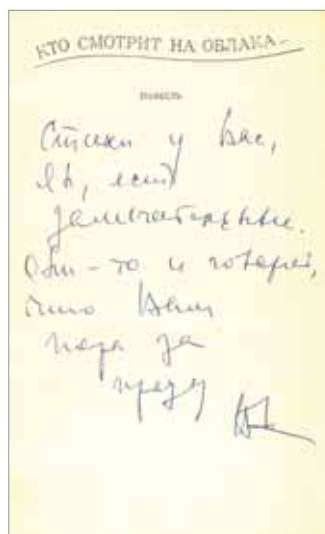 КТО СМОТРИТ НА ОБЛАКА
ПОВЕСТЬ
Стихи у Вас,
есть
замечательные.
Они-то и говорят,
что Вам
пора за
прозу